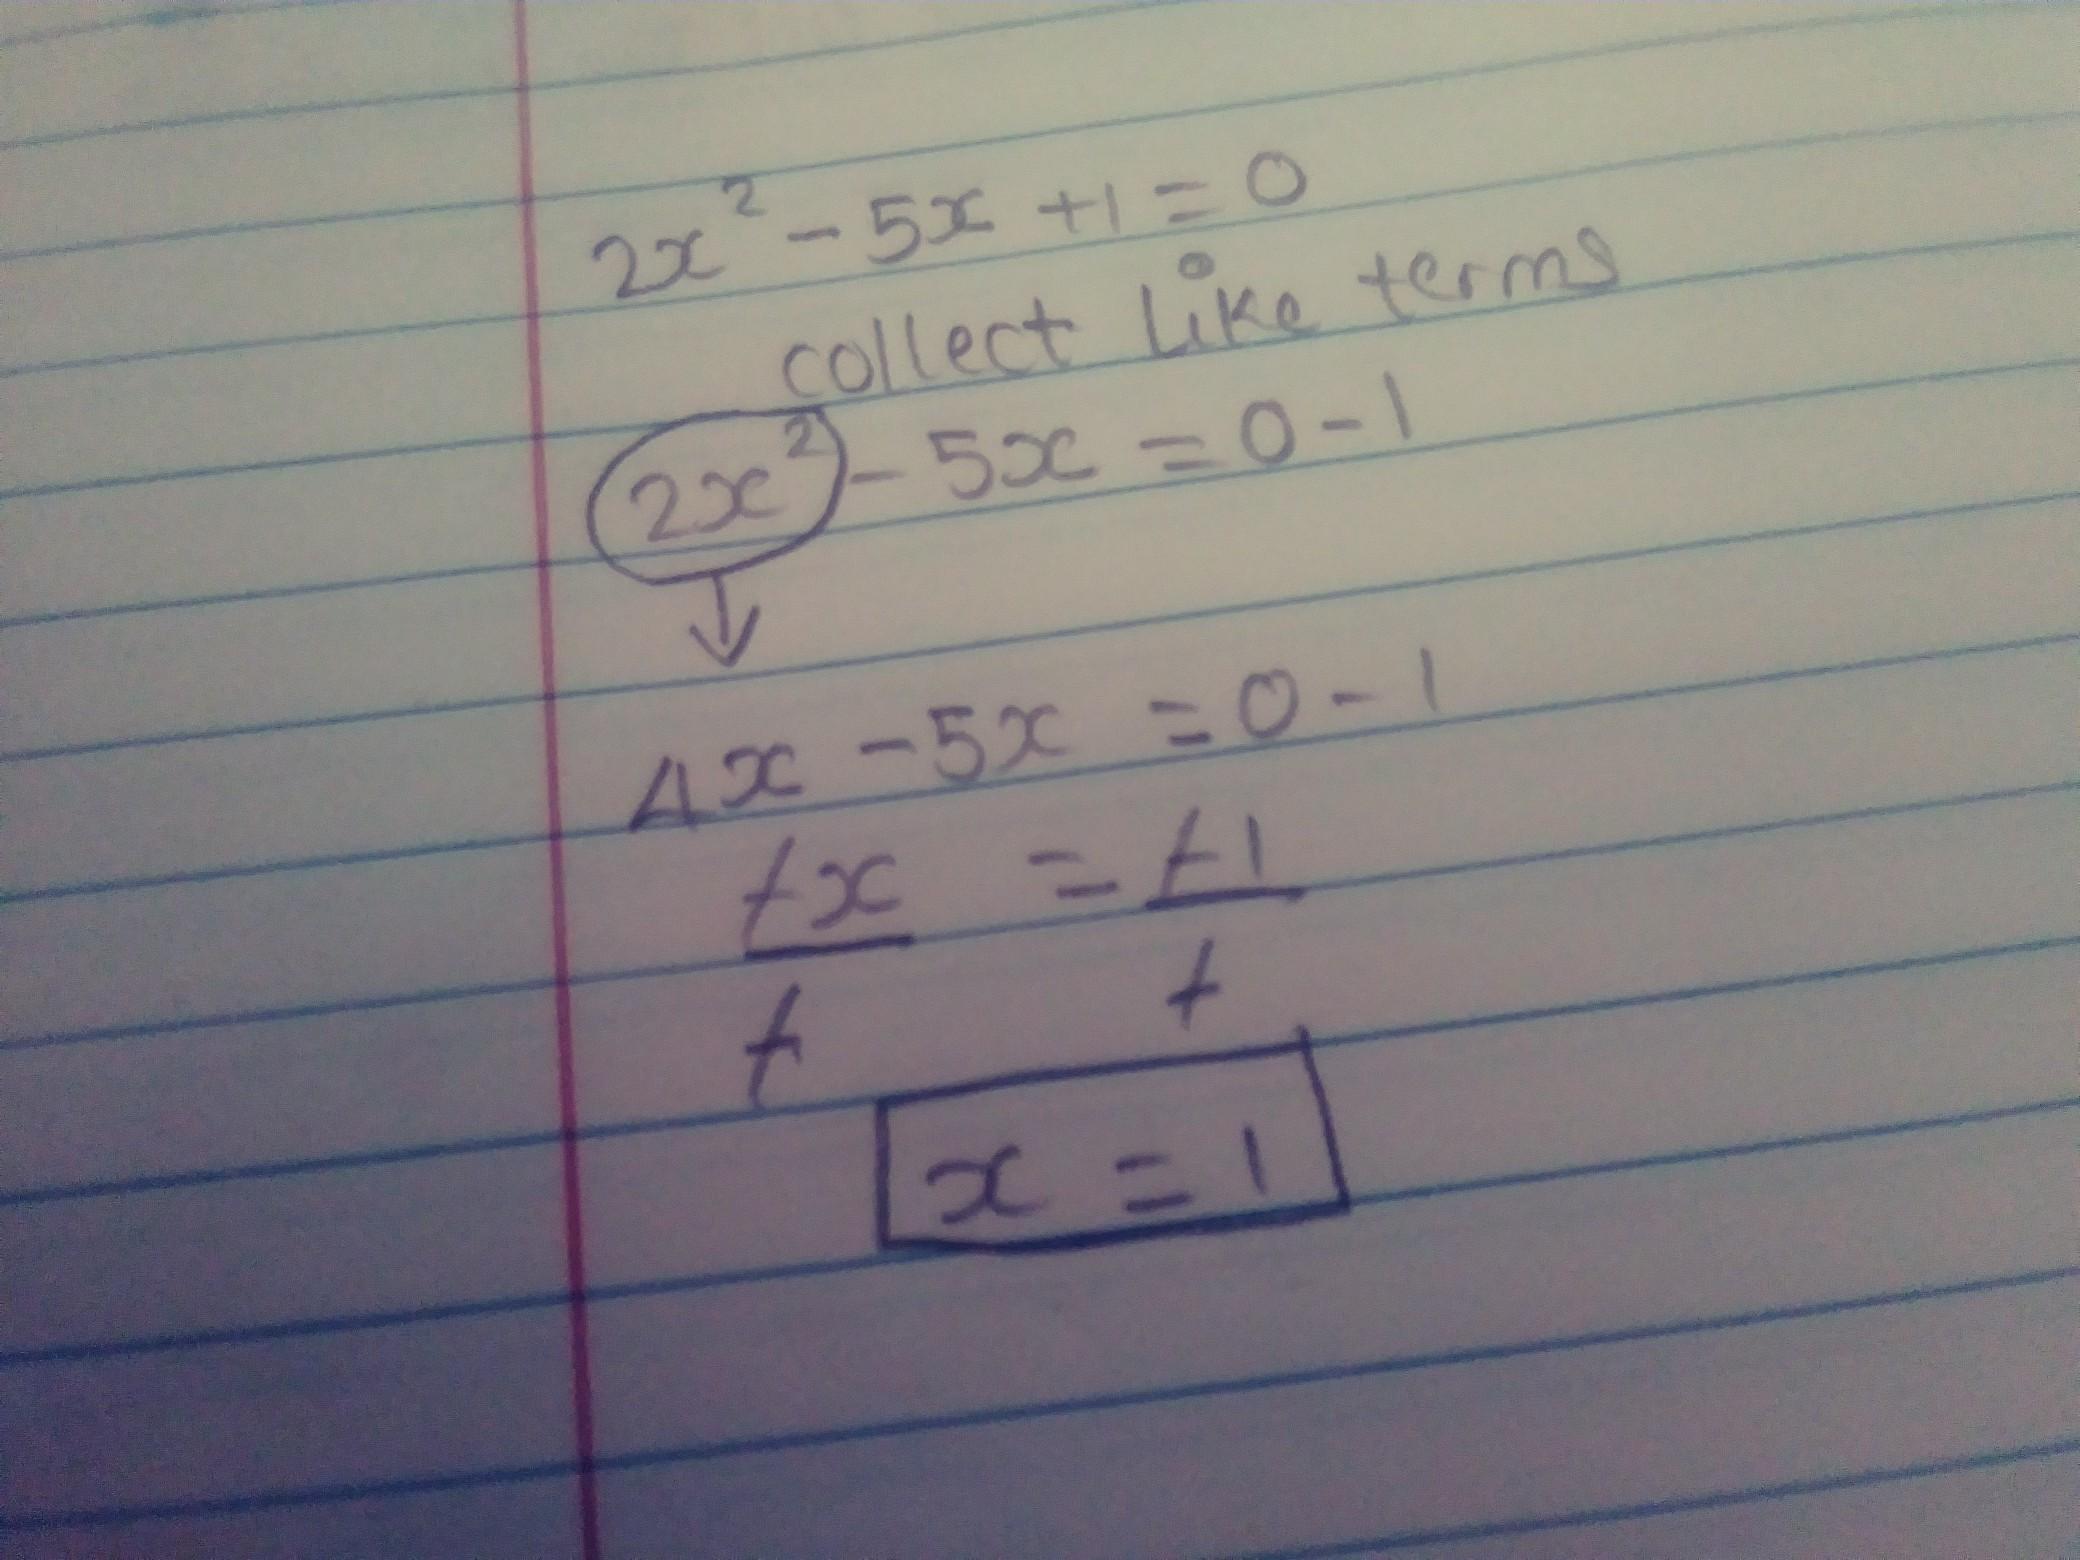 2x² - 5x + 1 = 0
collect like terms
2x² - 5x = 0 - 1
4x - 5x = 0 - 1
-x = -1
- -
x = 1